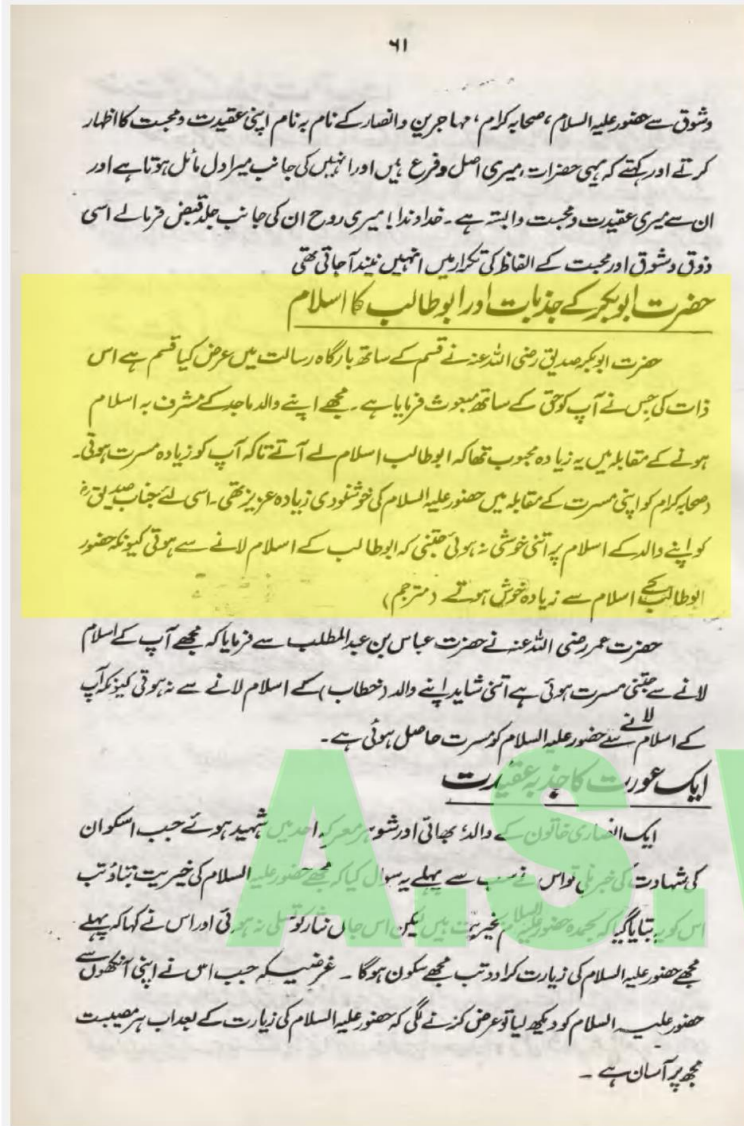 ۶۱
وشوق سے حضور علیہ السلام، صحابہ کرام، مہاجرین وانصار کے نام بہ نام اپنی عقیدت ومحبت کا اظہار
کرتے اور کہتے کہ یہی حضرات، میری اصل وفرع ہیں اور انہیں کی جانب میرا دل مائل ہوتا ہے اور
ان سے میری عقیدت ومحبت وابستہ ہے۔ خداوندا! میری روح ان کی جانب جلد قبض فرمالے اسی
ذوق وشوق اور محبت کے الفاظ کی تکرار میں انہیں نیند آجاتی تھی
حضرت ابوبکر کے جذبات اور ابوطالب کا اسلام
حضرت ابوبکر صدیق رضی اللہ عنہ نے قسم کے ساتھ بارگاہ رسالت میں عرض کیا قسم ہے اس
ذات کی جس نے آپ کو حق کے ساتھ مبعوث فرمایا ہے۔ مجھے اپنے والد ماجد کے مشرف بہ اسلام
ہونے کے مقابلہ میں یہ زیادہ محبوب تھا کہ ابوطالب اسلام لے آتے تاکہ آپ کو زیادہ مسرت ہوتی۔
(صحابہ کرام کو اپنی مسرت کے مقابلہ میں حضور علیہ السلام کی خوشنودی زیادہ عزیز تھی۔ اسی لئے جناب صدیق رض
کو اپنے والد کے اسلام پر اتنی خوشی نہ ہوئی جتنی کہ ابوطالب کے اسلام لانے سے ہوتی کیونکہ حضور
ابوطالب کے اسلام سے زیادہ خوش ہوتے (مترجم)
حضرت عمر رضی اللہ عنہ نے حضرت عباس بن عبدالمطلب سے فرمایا کہ مجھے آپ کے اسلام
لانے سے جتنی مسرت ہوئی ہے اتنی شاید اپنے والد (خطاب) کے اسلام لانے سے نہ ہوتی کیونکہ آپ
کے اسلام لانے سے حضور علیہ السلام کو مسرت حاصل ہوئی ہے۔
ایک عورت کا جذبہ عقیدت
ایک انصاری خاتون کے والد، بھائی اور شوہر معرکہ احد میں شہید ہوئے جب اسکو ان
کی شہادت کی خبر ملی تو اس نے سب سے پہلے یہ سوال کیا کہ مجھے حضور علیہ السلام کی خیریت بتاؤ تب
اس کو یہ بتایا گیا کہ بحمدہ حضور علیہ السلام بخیریت ہیں لیکن اس جاں نثار کو تسلی نہ ہوئی اور اس نے کہا کہ پہلے
مجھے حضور علیہ السلام کی زیارت کرادو تب مجھے سکون ہوگا۔ غرضیکہ جب اس نے اپنی آنکھوں سے
حضور علیہ السلام کو دیکھ لیا تو عرض کرنے لگی کہ حضور علیہ السلام کی زیارت کے بعد اب ہر مصیبت
مجھ پر آسان ہے۔
A.S.